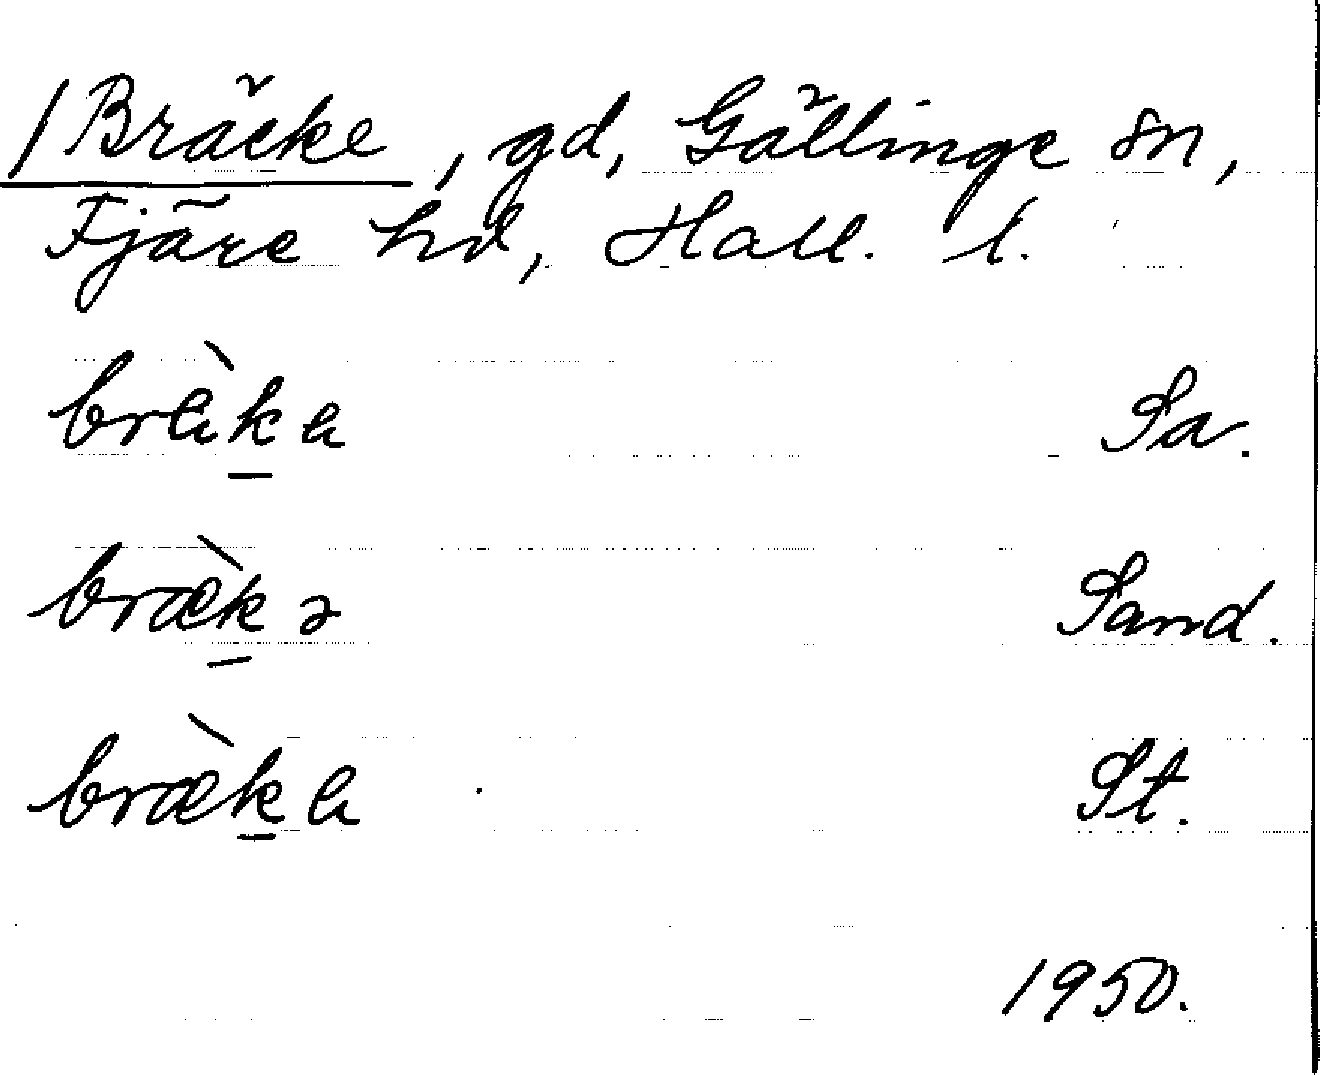 /Bräcke, gd, Gällinge sn,
Fjäre hd, Hall. l.
brä̀ka Sa.
bræ̀kə Sand.
bræ̀ka St.
1950.